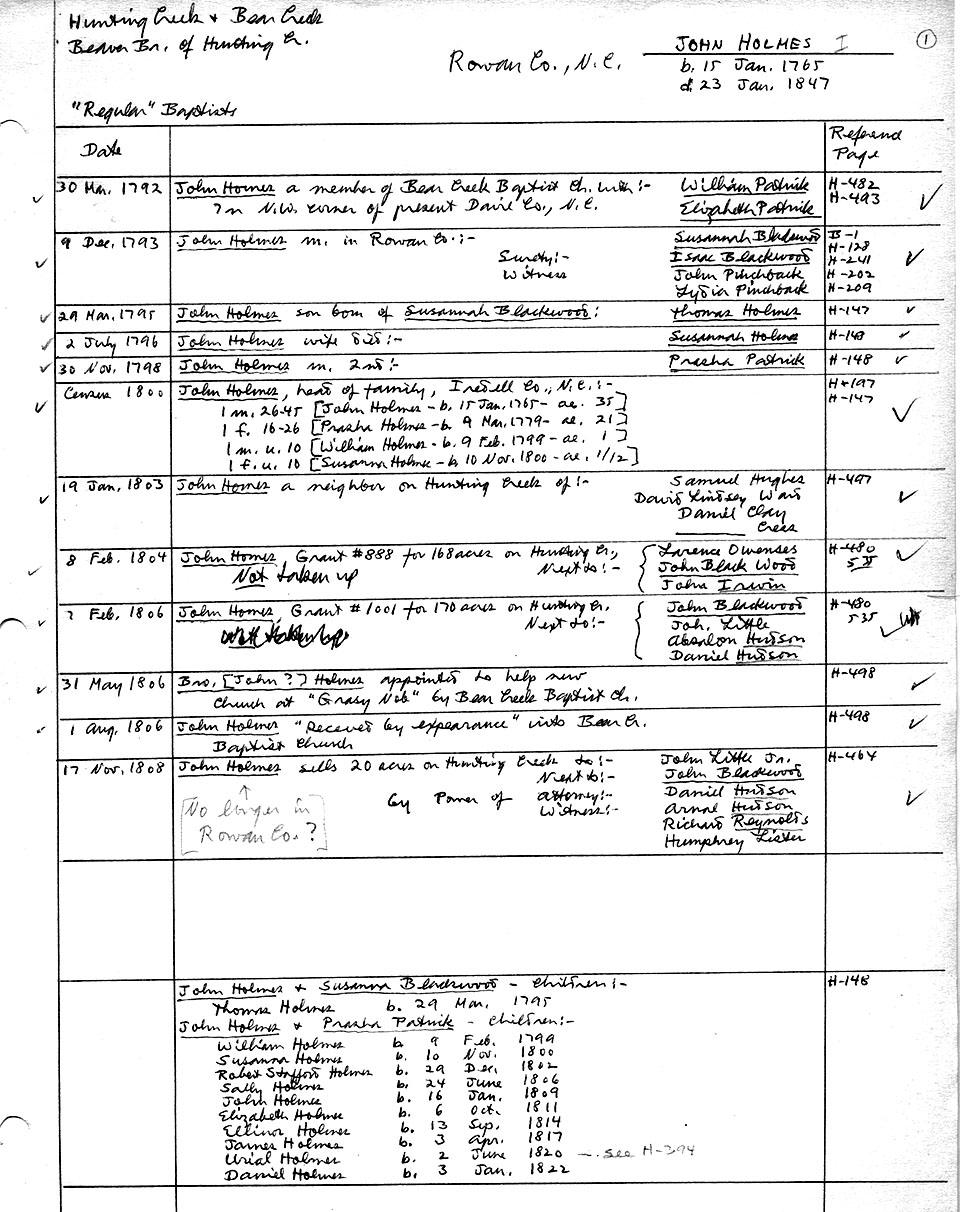 Hunting Creek & Bear Creek
Beaver Br. of Hunting Cr.
Rowan Co., N.C.
JOHN HOLMES I
b. 15 Jan. 1765
d. 23 Jan. 1847
1
"Regular" Baptists
Date
Reference Page
30 Mar. 1792 John Homes a member of Bear Creek Baptist Ch. with:- William Patrick H-482
? in N.W. corner of present Davie Co., N.C. Elizabeth Patrick H-493
9 Dec. 1793 John Holmes m. in Rowan Co.:- Susannah Blackwood B-1
H-128
Surety:- Isaac Blackwood H-241
Witness John Pinchback H-202
Lydia Pinchback H-209
29 Mar. 1795 John Holmes son born of Susannah Blackwood: Thomas Holmes H-147
2 July 1796 John Holmes wife died:- Susannah Holmes H-148
30 Nov. 1798 John Holmes m. 2nd:- Prasha Patrick H-148
Census 1800 John Holmes, head of family, Iredell Co., N.C.:- H-197
1 m. 26-45 [John Holmes - b. 15 Jan. 1765 - ae. 35] H-147
1 f. 16-26 [Prasha Holmes - b. 9 Mar. 1779 - ae. 21]
1 m. u. 10 [William Holmes - b. 9 Feb. 1799 - ae. 1]
1 f. u. 10 [Susanna Holmes - b. 10 Nov. 1800 - ae. 1/12]
19 Jan. 1803 John Homes a neighbor on Hunting Creek of:- Samuel Hughes H-497
David Lindsey
Daniel Clay
Cress
8 Feb. 1804 John Homes, Grant #888 for 168 acres on Hunting Cr., Larence Owenses H-480
Not taken up Next to:- John Black Wood
John Irwin
7 Feb. 1806 John Homes, Grant #1001 for 170 acres on Hunting Cr. John Blackwood H-480
Next to:- Joh. Little 535
Absalon Hudson
Daniel Hudson
31 May 1806 Bro. [John?] Holmes appointed to help new H-498
church at "Grasy Nob" by Bear Creek Baptist Ch.
1 Aug. 1806 John Holmes "Received by expearance" into Bear Cr. H-498
Baptist Church
17 Nov. 1808 John Holmes sells 20 acres on Hunting Creek to:- John Little Jr. H-464
Next to:- John Blackwood
by Power of attorney:- Daniel Hudson
Witness:- Arnal Hudson
Richard Reynolds
Humphrey Lister
[No longer in
Rowan Co.?]
John Holmes & Susanna Blackwood - Children:- H-148
Thomas Holmes b. 29 Mar. 1795
John Holmes & Prasha Patrick - Children:-
William Holmes b. 9 Feb. 1799
Susanna Holmes b. 10 Nov. 1800
Robert Stafford Holmes b. 29 Dec. 1802
Sally Holmes b. 24 June 1806
John Holmes b. 16 Jan. 1809
Elizabeth Holmes b. 6 Oct. 1811
Ellinor Holmes b. 13 Sep. 1814
James Holmes b. 3 Apr. 1817
Urial Holmes b. 2 June 1820 - see H-394
Daniel Holmes b. 3 Jan. 1822